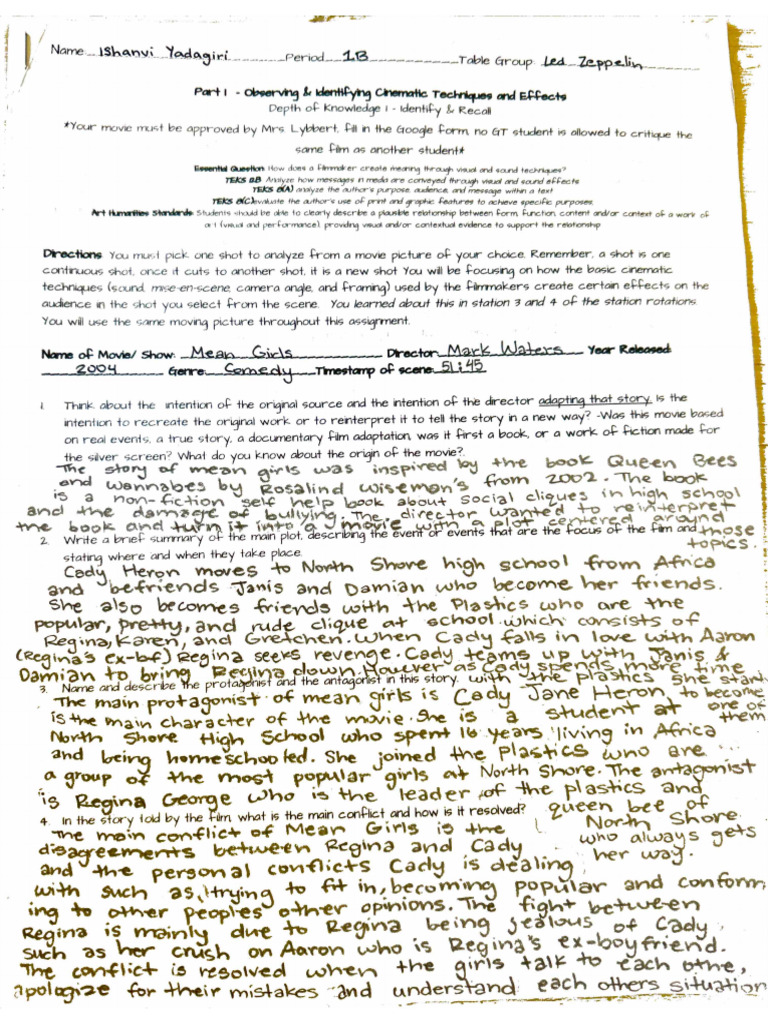 Name Ishanvi Yadagiri Period 1B Table Group: Led Zeppelin
Part 1 - Observing & Identifying Cinematic Techniques and Effects
Depth of Knowledge 1 - Identify & Recall
*Your movie must be approved by Mrs. Lybbert, fill in the Google form, no GT student is allowed to critique the
same film as another student*
Essential Question: How does a filmmaker create meaning through visual and sound techniques?
TEKS 12B Analyze how messages in media are conveyed through visual and sound effects
TEKS 8(A) analyze the author's purpose, audience, and message within a text
TEKS 8(C) evaluate the author's use of print and graphic features to achieve specific purposes.
Art Humanities Standards: Students should be able to clearly describe a plausible relationship between form, function, content and/or context of a work of
art (visual and performance), providing visual and/or contextual evidence to support the relationship
Directions You must pick one shot to analyze from a movie picture of your choice. Remember, a shot is one
continuous shot, once it cuts to another shot, it is a new shot You will be focusing on how the basic cinematic
techniques (sound, mise-en-scene, camera angle, and framing) used by the filmmakers create certain effects on the
audience in the shot you select from the scene. You learned about this in station 3 and 4 of the station rotations.
You will use the same moving picture throughout this assignment.
Name of Movie/ Show: Mean Girls Director: Mark Waters Year Released:
2004 Genre: Comedy Timestamp of scene: 51:45
1. Think about the intention of the original source and the intention of the director adapting that story. Is the
intention to recreate the original work or to reinterpret it to tell the story in a new way? -Was this movie based
on real events, a true story, a documentary film adaptation, was it first a book, or a work of fiction made for
the silver screen? What do you know about the origin of the movie?.
The story of mean girls was inspired by the book Queen Bees
and wannabes by Rosalind Wiseman's from 2002. The book
is a non-fiction self help book about social cliques in high school
and the damage of bullying. The director wanted to reinterpret
the book and turn it into a movie with a plot centered around
those
topics.
2. Write a brief summary of the main plot, describing the event or events that are the focus of the film and
stating where and when they take place.
Cady Heron moves to North Shore high school from Africa
and befriends Janis and Damian who become her friends.
She also becomes friends with the Plastics who are the
popular, pretty, and rude clique at school which consists of
Regina, Karen, and Gretchen. When Cady falls in love with Aaron
(Regina's ex-bf) Regina seeks revenge. Cady teams up with Janis &
Damian to bring Regina down. However as Cady spends more time
with the plastics she starts
to become
one of
them
3. Name and describe the protagonist and the antagonist in this story.
The main protagonist of mean girls is Cady Jane Heron,
is the main character of the movie. She is a student at
North Shore High School who spent 16 years living in Africa
and being homeschooled. She joined the plastics who are
a group of the most popular girls at North Shore. The antagonist
is Regina George who is the leader of the plastics and
queen bee of
North Shore
who always gets
her way.
4. In the story told by the film, what is the main conflict and how is it resolved?
The main conflict of Mean Girls is the
disagreements between Regina and Cady
and the personal conflicts Cady is dealing
with such as, trying to fit in, becoming popular and conform
ing to other peoples other opinions. The fight between
Regina is mainly due to Regina being jealous of Cady
such as her crush on Aaron who is Regina's ex-boyfriend.
The conflict is resolved when the girls talk to each othe,
apologize for their mistakes and understand each others situation